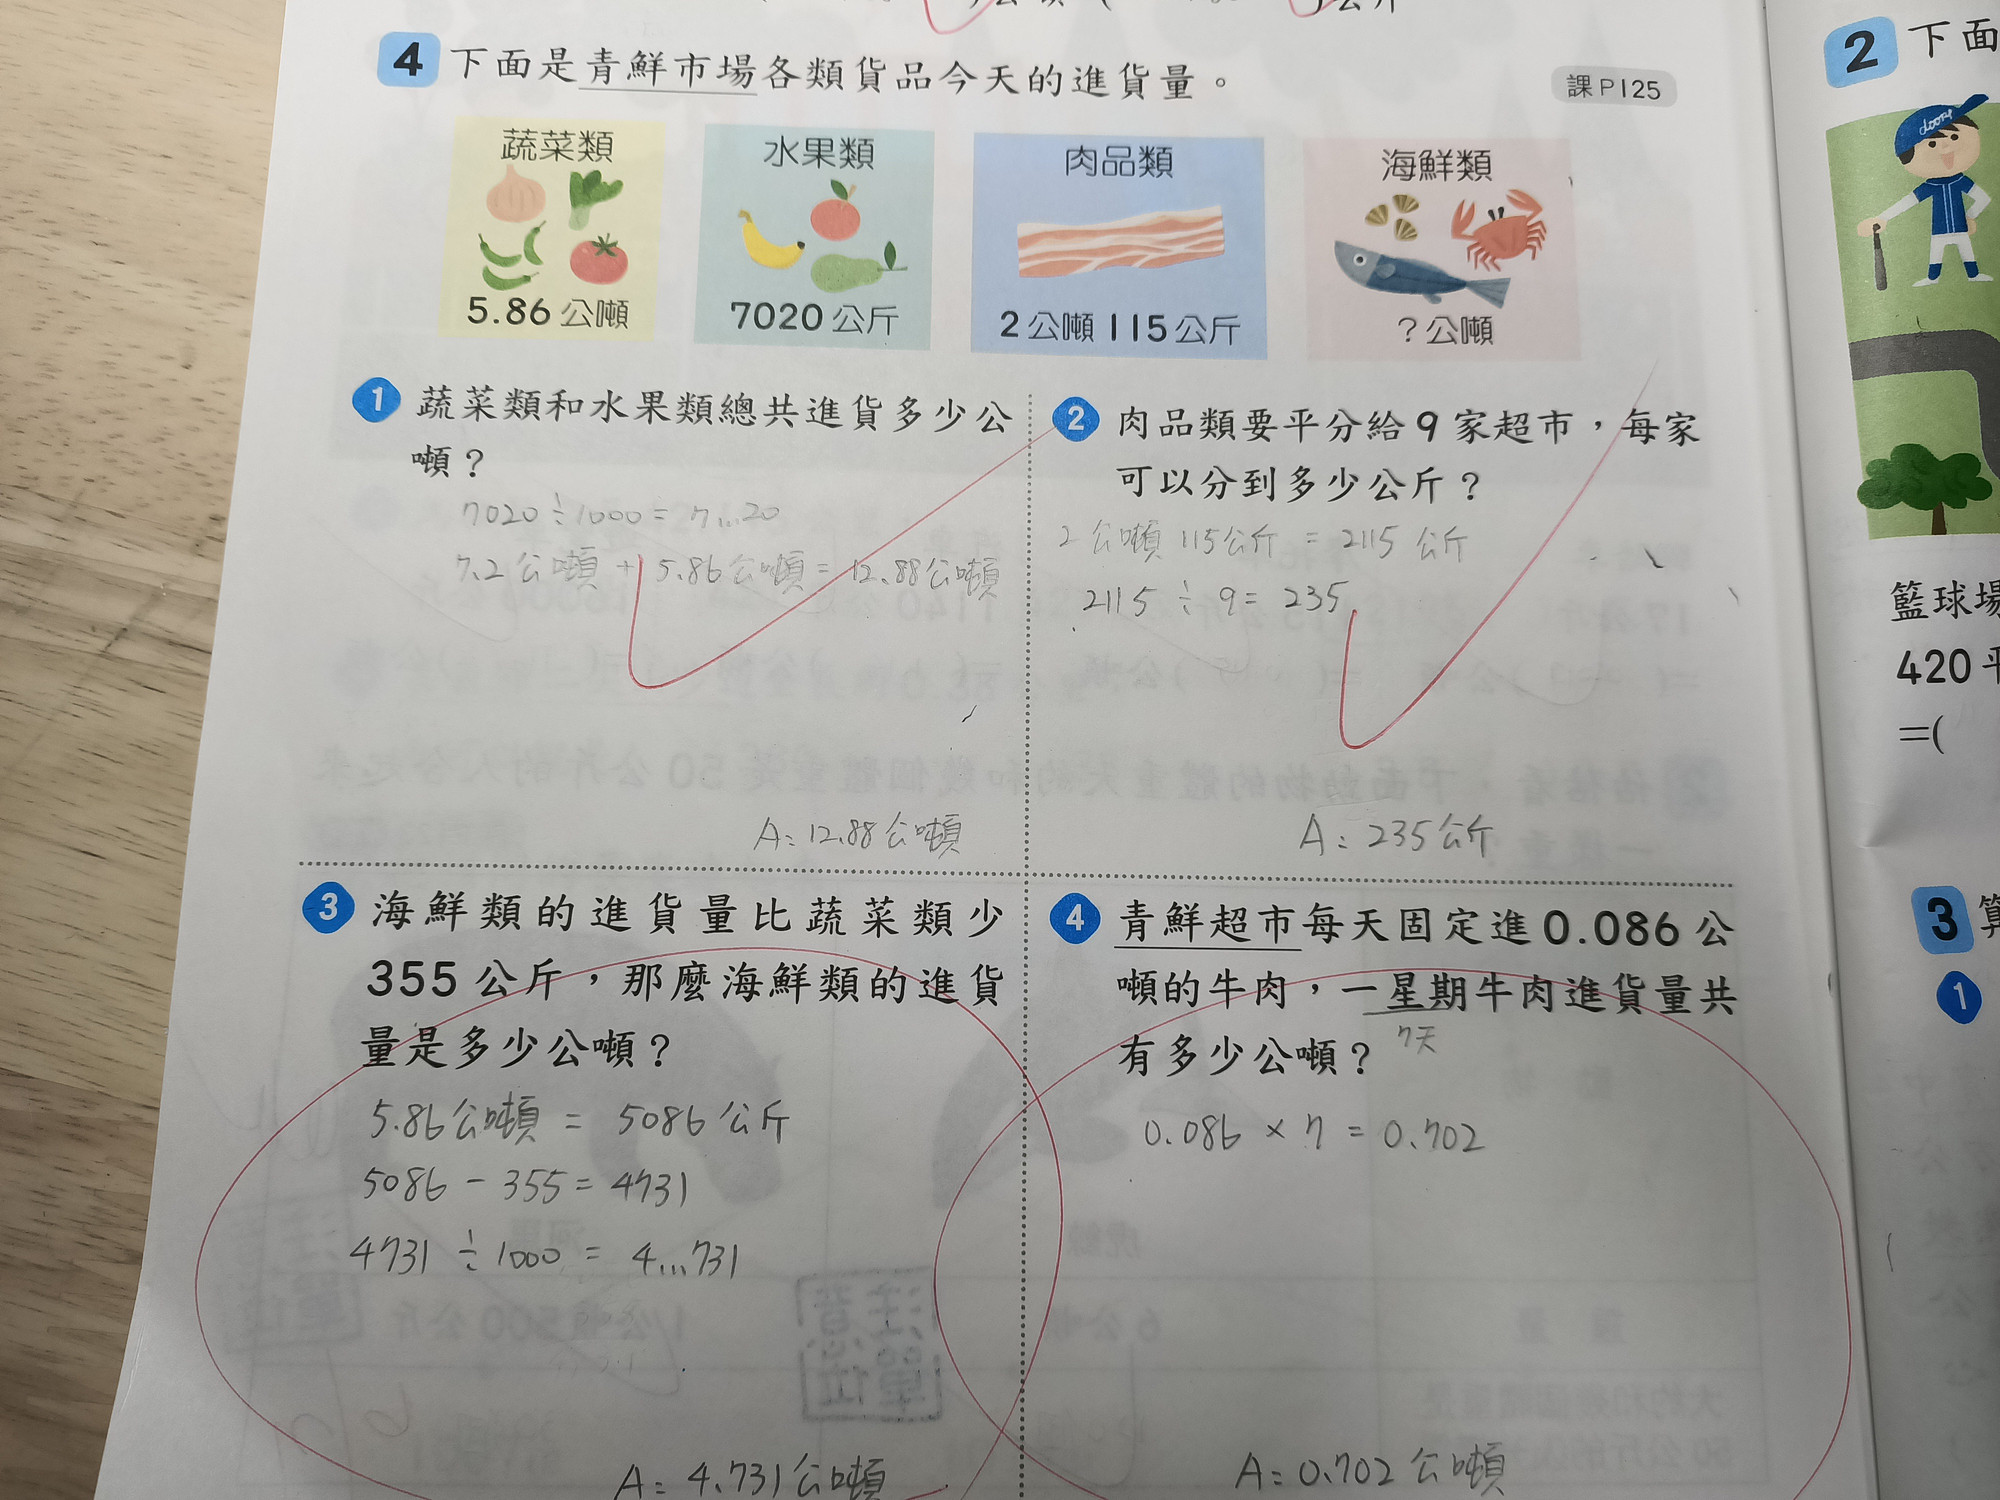 4 下面是青鮮市場各類貨品今天的進貨量。
課P125
蔬菜類
5.86公噸
水果類
7020公斤
肉品類
2公噸115公斤
海鮮類
?公噸
1 蔬菜類和水果類總共進貨多少公
噸?
7020÷1000=7...20
7.2公噸+5.86公噸=12.88公噸
A:12.88公噸
2 肉品類要平分給9家超市,每家
可以分到多少公斤?
2公噸115公斤=2115公斤
2115÷9=235
A:235公斤
3 海鮮類的進貨量比蔬菜類少
355公斤,那麼海鮮類的進貨
量是多少公噸?
5.86公噸=5086公斤
5086-355=4731
4731÷1000=4...731
A:4.731公噸
4 青鮮超市每天固定進0.086公
噸的牛肉,一星期牛肉進貨量共
有多少公噸?
7天
0.086×7=0.702
A:0.702公噸
2 下面
door
籃球場
420平
=(
3 算
1